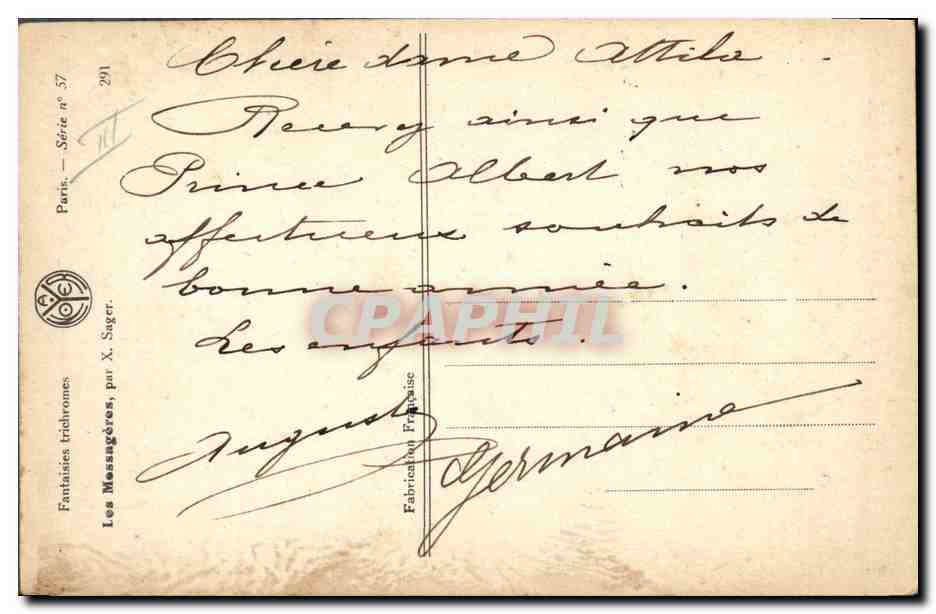 Chère dame Attila.
Recevez ainsi que
Prince Albert nos
affectueux souhaits de
bonne année.
Les enfants.
Auguste
Germaine
Fantaisies trichromes
Paris. — Série n° 57
Les Messagères, par X. Sager.
291
III
Fabrication Française
CPAPHIL